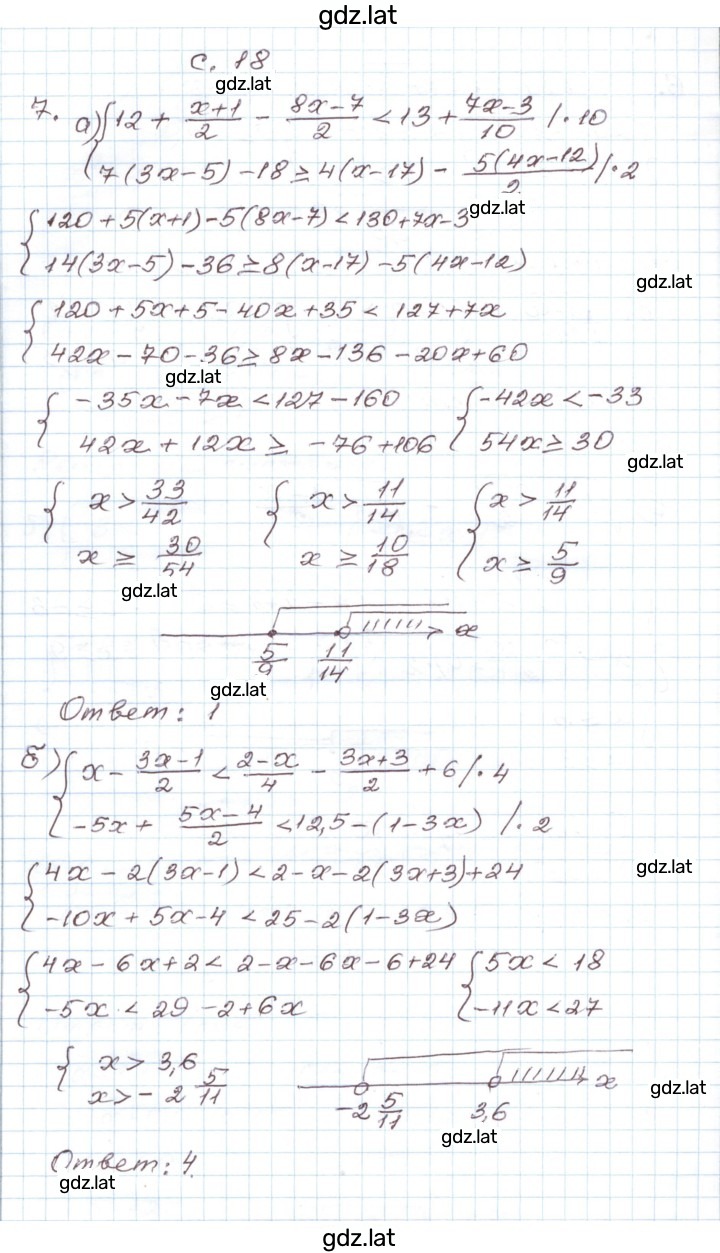 gdz.lat
с. 18
gdz.lat
7. а) { 12 + (x+1)/2 - (8x-7)/2 < 13 + (7x-3)/10 /·10
{ 7(3x-5) -18 ≥ 4(x-17) - 5(4x-12)/2 /·2
gdz.lat
{ 120 + 5(x+1) - 5(8x-7) < 130 + 7x - 3
{ 14(3x-5) - 36 ≥ 8(x-17) - 5(4x-12)
gdz.lat
{ 120 + 5x + 5 - 40x + 35 < 127 + 7x
{ 42x - 70 - 36 ≥ 8x - 136 - 20x + 60
gdz.lat
{ -35x - 7x < 127 - 160 { -42x < -33
{ 42x + 12x ≥ -76 + 106 { 54x ≥ 30
gdz.lat
{ x > 33/42 { x > 11/14 { x > 11/14
{ x ≥ 30/54 { x ≥ 10/18 { x ≥ 5/9
gdz.lat
x
5/9 11/14
gdz.lat
Ответ: 1
б) { x - (3x-1)/2 < (2-x)/4 - (3x+3)/2 + 6 /·4
{ -5x + (5x-4)/2 < 12,5 - (1-3x) /·2
gdz.lat
{ 4x - 2(3x-1) < 2 - x - 2(3x+3) + 24
{ -10x + 5x - 4 < 25 - 2(1-3x)
{ 4x - 6x + 2 < 2 - x - 6x - 6 + 24 { 5x < 18
{ -5x < 29 - 2 + 6x { -11x < 27
{ x > 3,6
{ x > -2 5/11
x
gdz.lat
-2 5/11 3,6
gdz.lat
Ответ: 4.
gdz.lat
gdz.lat